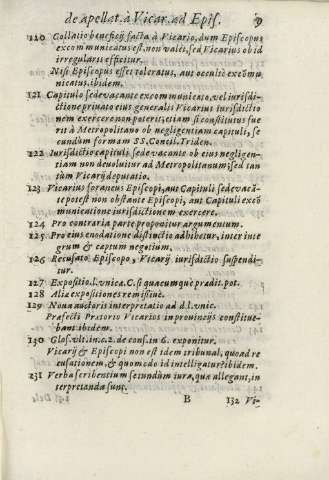 de apellat. à Vicar. ad Epis.
120 Collatio beneficij facta à Vicario, dum Episcopus
excommunicatus est, non valet, sed Vicarius ob id
irregularis efficitur.
Nisi Episcopus esset toleratus, aut occultè excõmu
nicatus. ibidem.
121 Capitulo sede vacante excommunicato, vel iurisdi-
ctione priuato eius generalis Vicarius iurisdictio
nem exercere non poterit, etiam si constitutus fue
rit à Metropolitano ob negligentiam capituli, se
cundum formam SS. Concil. Triden.
122 Iurisdictio capituli sede vacante ob eius negligen-
tiam non deuoluitur ad Metropolitanum; sed tan
tùm Vicarij deputatio.
123 Vicarius foraneus Episcopi, aut Capituli sede vacã-
te potest non obstante Episcopi, aut Capituli excõ
municatione iurisdictionem exercere.
124 Pro contraria parte proponitur argumentum.
125 Pro eius enodatione distinctio adhibetur, inter inte
grum & cæptum negotium.
126 Recusato Episcopo, Vicarij iurisdictio suspendi-
tur.
127 Expositio. l. vnicæ. C. si quacumque prædit. pot.
128 Aliæ expositiones remissiuè.
129 Noua auctoris interpretatio ad d. l. vnic.
Præfecti Prætorio Vicarios in prouincijs constitue-
bant. ibidem.
130 Glos. vlt. in c. 2. de cons. in 6. exponitur.
Vicarij & Episcopi non est idem tribunal, quoad re
cusationem, & quomodo id intelligatur? ibidem.
131 Verba scribentium secundùm iura, quæ allegant, in
terpretanda sunt.
B 132 Vi-